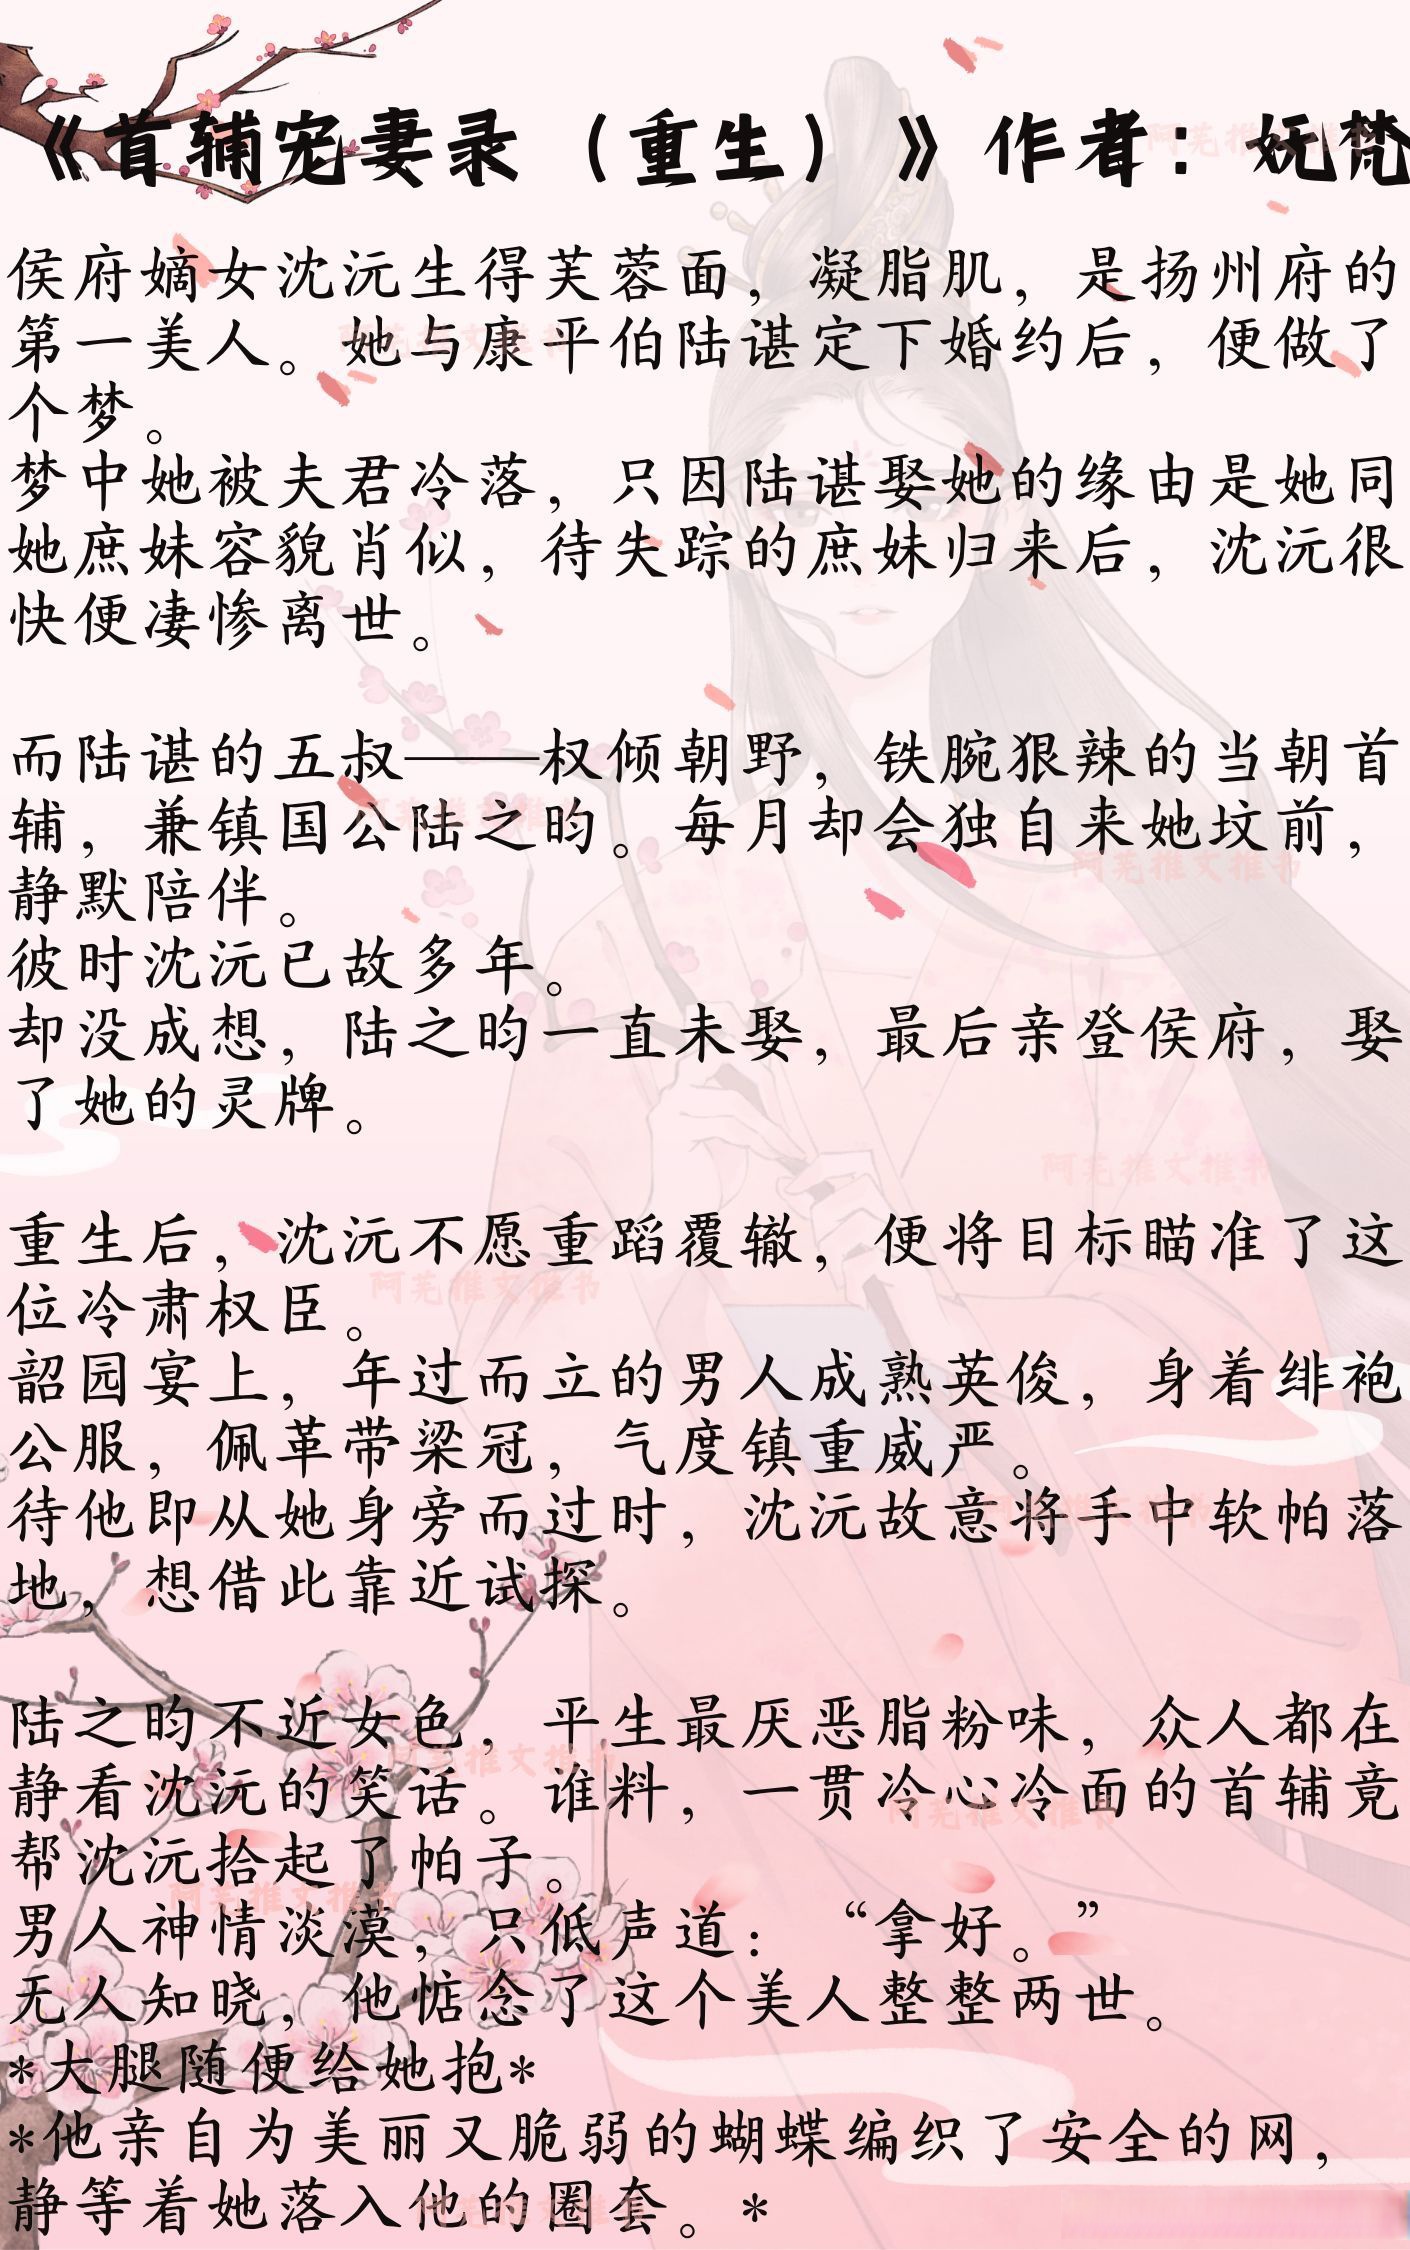 《首辅宠妻录（重生）》作者：妩梵
侯府嫡女沈沅生得芙蓉面，凝脂肌，是扬州府的
第一美人。她与康平伯陆谌定下婚约后，便做了
个梦。
梦中她被夫君冷落，只因陆谌娶她的缘由是她同
她庶妹容貌肖似，待失踪的庶妹归来后，沈沅很
快便凄惨离世。
而陆谌的五叔——权倾朝野，铁腕狠辣的当朝首
辅，兼镇国公陆之昀。每月却会独自来她坟前，
静默陪伴。
彼时沈沅已故多年。
却没成想，陆之昀一直未娶，最后亲登侯府，娶
了她的灵牌。
重生后，沈沅不愿重蹈覆辙，便将目标瞄准了这
位冷肃权臣。
韶园宴上，年过而立的男人成熟英俊，身着绯袍
公服，佩革带梁冠，气度镇重威严。
待他即从她身旁而过时，沈沅故意将手中软帕落
地，想借此靠近试探。
陆之昀不近女色，平生最厌恶脂粉味，众人都在
静看沈沅的笑话。谁料，一贯冷心冷面的首辅竟
帮沈沅拾起了帕子。
男人神情淡漠，只低声道：“拿好。”
无人知晓，他惦念了这个美人整整两世。
*大腿随便给她抱*
*他亲自为美丽又脆弱的蝴蝶编织了安全的网，
静等着她落入他的圈套。*
阿芜推文推书
阿芜推文推书
阿芜推文推书
阿芜推文推书
阿芜推文推书
阿芜推文推书
阿芜推文推书
阿芜推文推书
阿芜推文推书
阿芜推文推书
阿芜推文推书